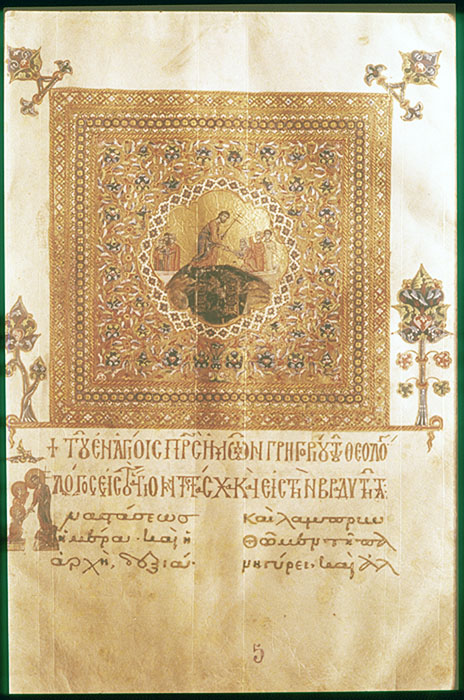 + ΤΥ ΕΝ ΑΓΙΟΙΣ ΠΡΣ ΗΜΩΝ ΓΡΗΓΟΡΙΥ ΤΥ ΘΕΟΛΟΓ
ΛΟΓΟΣ ΕΙΣ ΤΟ ΑΓΙΟΝ ΠΑΣΧΑ Κ ΕΙΣ ΤΗΝ ΒΡΑΔΥΤΗΤΑ:
Αναστάσεωσ
ἡμέρα· καὶ ἡ
ἀρχὴ, δεξιά·
καὶ λαμπρυν
θῶμεν τῆ πα
νηγύρει· καὶ ἀλ
5